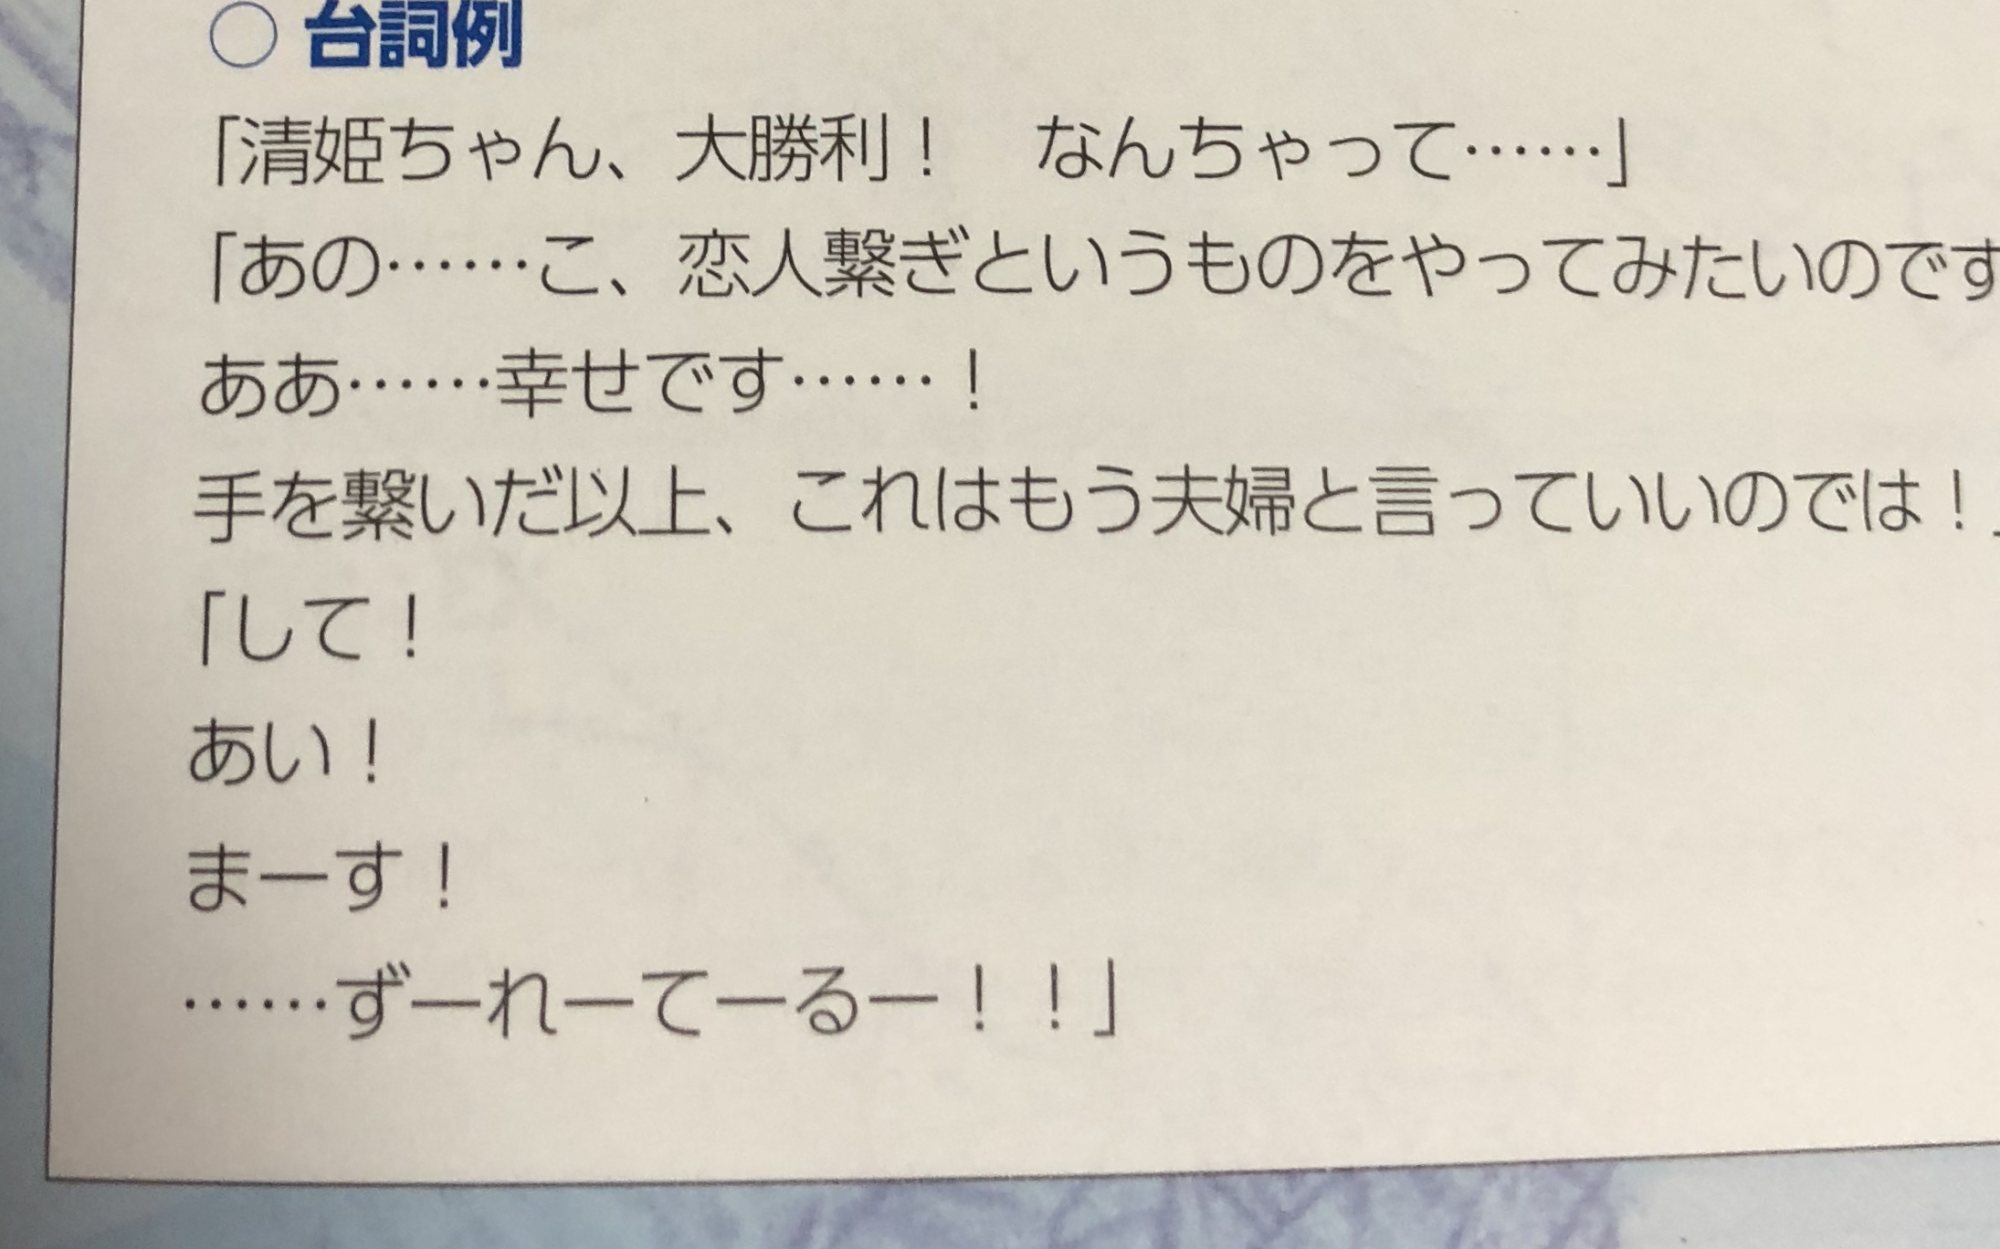 ○ 台詞例
「清姫ちゃん、大勝利！　なんちゃって……」
「あの……こ、恋人繋ぎというものをやってみたいのです
ああ……幸せです……！
手を繋いだ以上、これはもう夫婦と言っていいのでは！」
「して！
あい！
まーす！
……ずーれーてーるー！！」